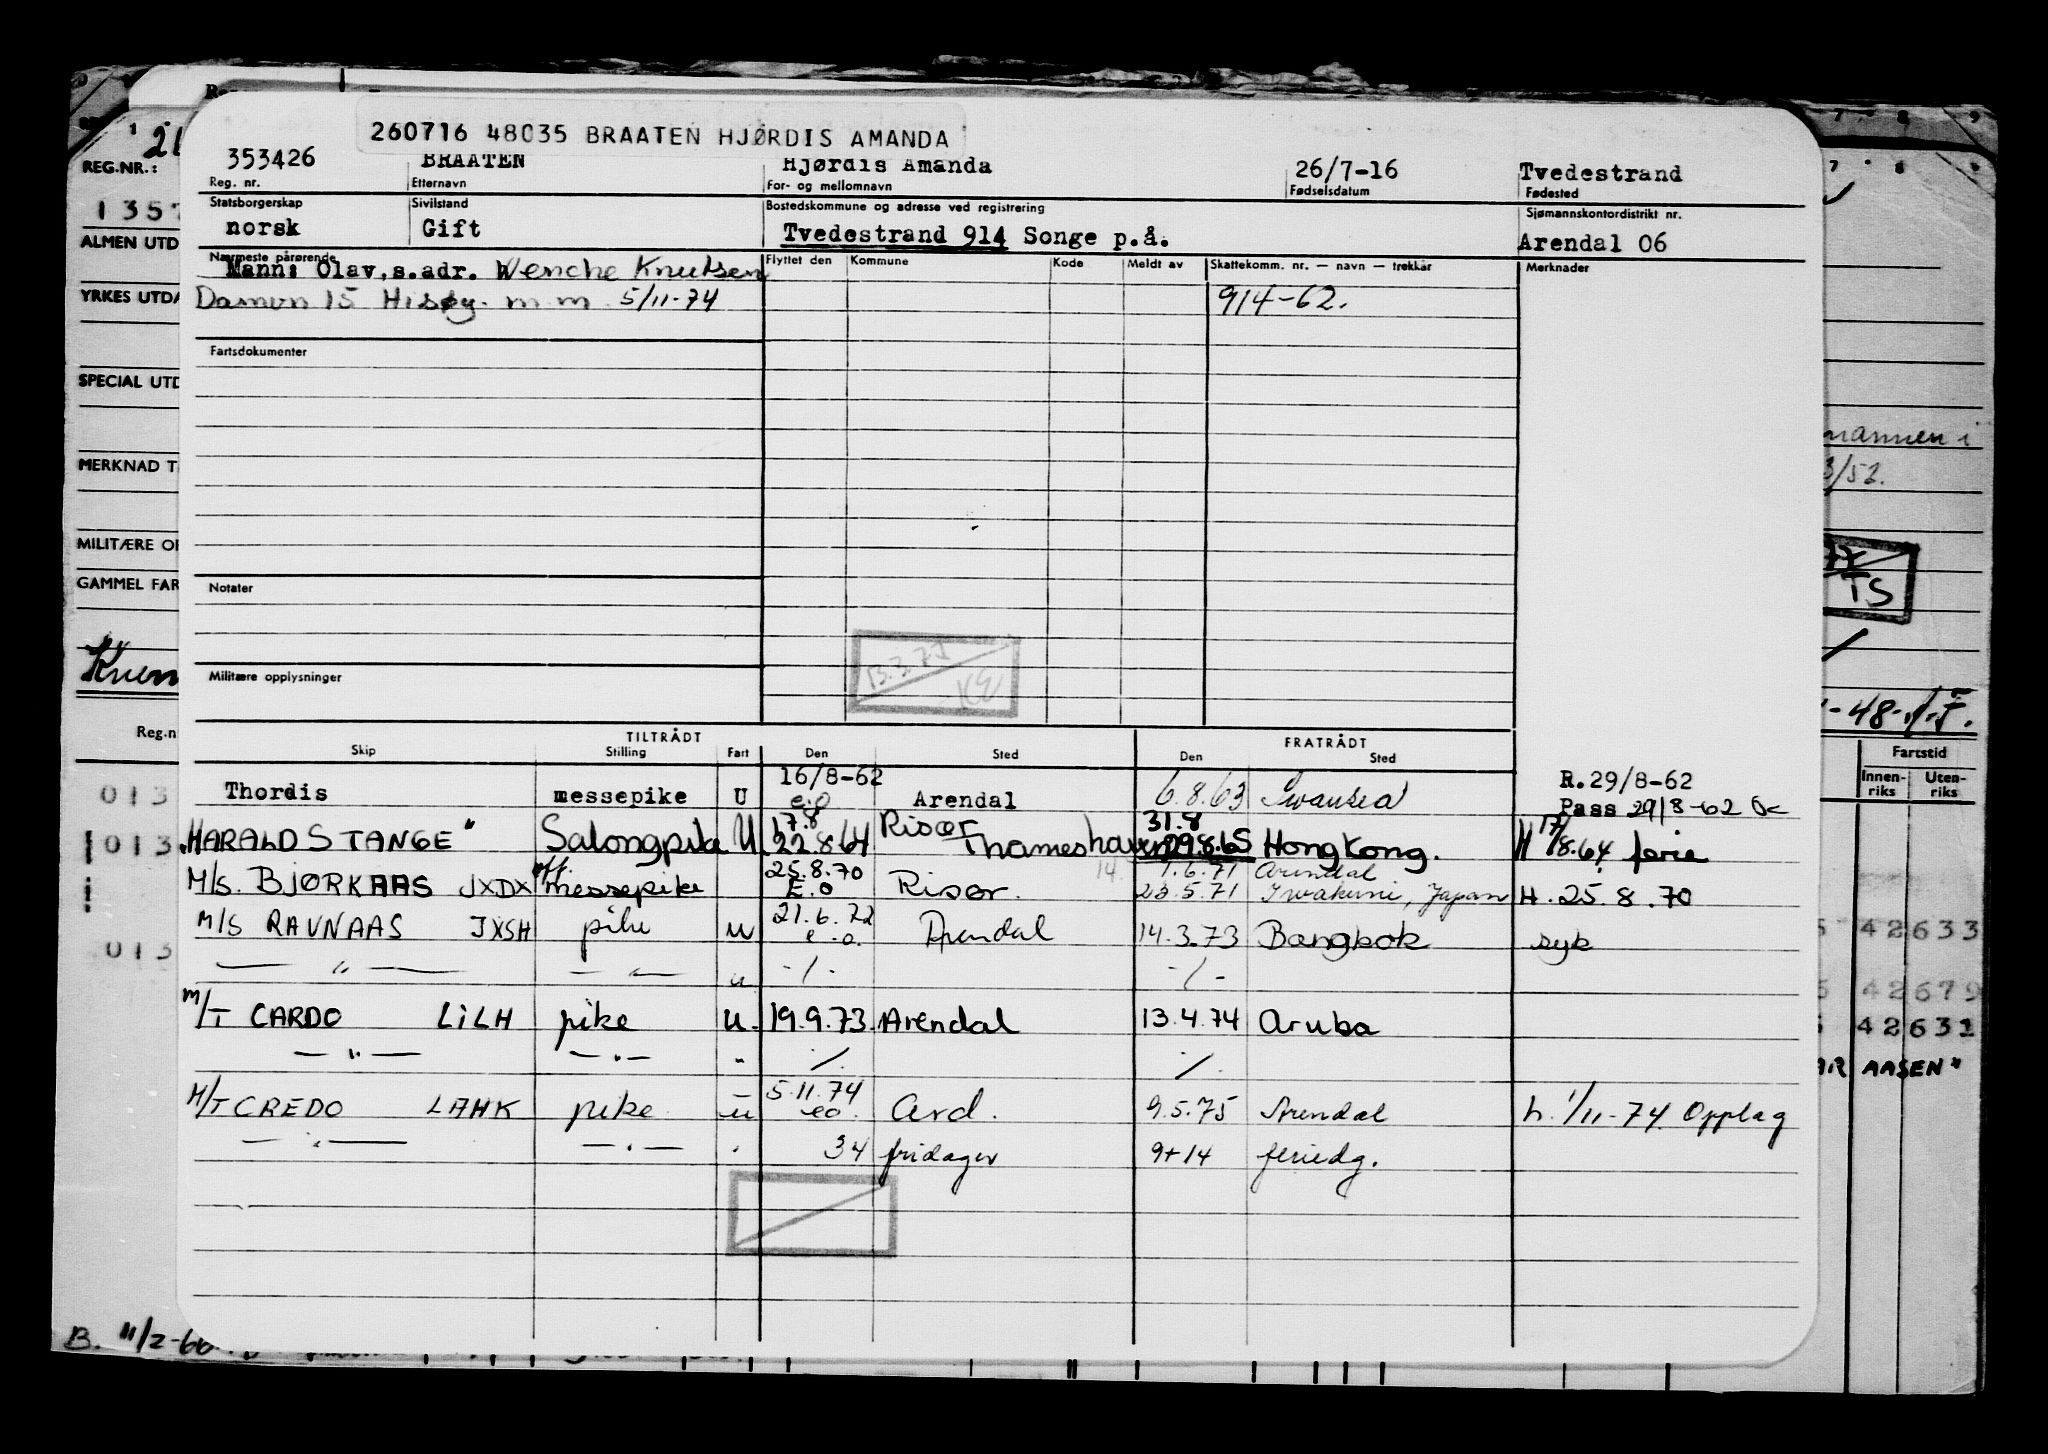 260716 48035 BRAATEN HJØRDIS AMANDA
353426 BRAATEN Hjørdis Amanda 26/7-16 Tvedestrand
Reg. nr. Etternavn For- og mellomnavn Fødselsdatum Fødested
Statsborgerskap Sivilstand Bostedskommune og adresse ved registrering Sjømannskontordistrikt nr.
norsk Gift Tvedestrand 914 Songe p.å. Arendal 06
Nærmeste pårørende Flyttet den Kommune Kode Meldt av Skattekomm. nr. — navn — trekkår Merknader
Mann: Olav, s.adr. Wenche Knutsen
15 Hisøy. m.m. 5/11-74 914-62.
Fartsdokumenter
Notater
13.3.75
Militære opplysninger
TILTRÅDT FRATRÅDT
Skip Stilling Fart Den Sted Den Sted
16/8-62 R.29/8-62
Thordis messepike U e.o Arendal 6.8.63 Swansea Pass 29/8-62
17.8 Risør 31.8
HARALD STANGE" Salongpike U 22.8.64 Thameshaven 29.8.65 Hong Kong. H 17/8.64 ferie
25.8.70 1.6.71 Arendal
M/S. BJØRKAAS JXDX messepike E.O Risør. 23.5.71 Iwakuni, Japan H. 25.8.70
21.6.72
M/S RAVNAAS JXSH pike u e.o. Arendal 14.3.73 Bangkok syk
— " — — " — u -/- -/-
M/T CARDO LILH pike u. 19.9.73 Arendal 13.4.74 Aruba
— " — — " — " ./. ./.
5.11.74
M/T CREDO LAHK pike u eo. Ard. 9.5.75 Arendal h. 1/11-74 Opplag
— " — — " — " 34 fridager 9+14 feriedg.
REG.NR.:
1357
ALMEN UTD
YRKES UTDA
SPECIAL UTD
MERKNAD T
MILITÆRE OP
GAMMEL FAR
Reg.n
013
013
013
B. 11/2-60
mannen i
3/52.
TS
-48-
Fartstid
Innen-riks Uten-riks
42633
42679
42631
AASEN"